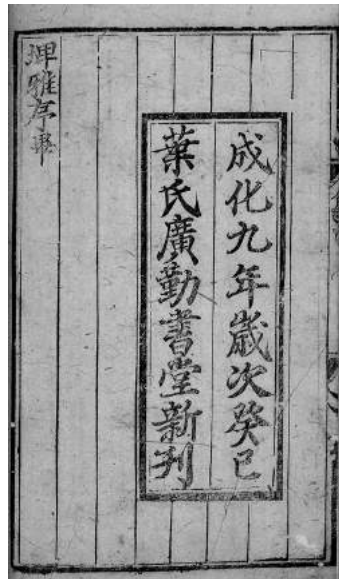 成化九年歲次癸巳
葉氏廣勤書堂新刊
埤雅序畢